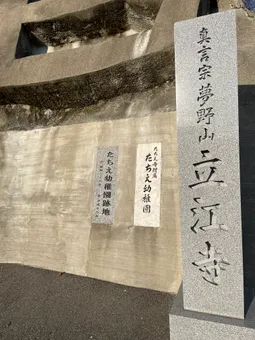 真言宗夢野山立江寺
たちえ幼稚園
たちえ幼稚園跡地